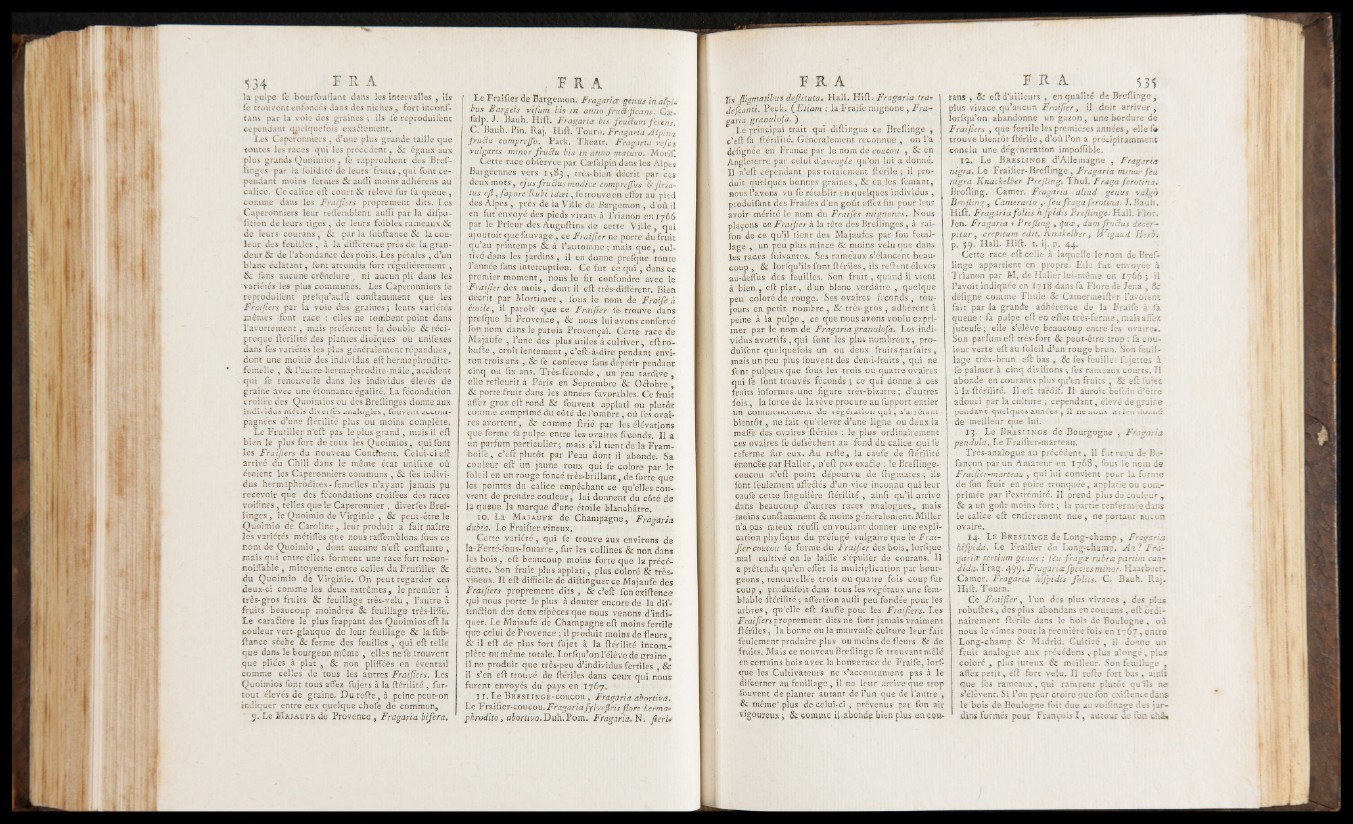 534 FRA
la pulpe se boursouflant dans les intervalles, ils
se trouvent enfoncés dans des niches, fort inconstans
par la voie des graines ; ils se reproduisent
cependant quelquefois exactement.
Les Caperonniers, d'une plus grande taille que
toutes les races qui les précédent, & égaux aux
plus grands Quoimios, se rapprochent des Breslinges
par la solidité de leurs fruits, qui sont cependant
moins fermes & aussi moins adhérens au
calice. Ce calice est court & relevé sur sa queue,
comme dans les Fraisiers proprement dits. Les
Caperonniers leur ressemblent aussi par la disposition
de leurs tiges, de leurs foibles rameaux &
de leurs courans, & par la substance & la couleur
des feuilles, à la différence près de la grandeur
& de l'abondance des poils. Les pétales, d'un
blanc éclatant, sont arrondis fort régulièrement,
& sans aucune crénelure, ni aucun pli dans les
variétés les plus communes. Les Caperonniers se
reproduisent presqu'aussi constamment que les
Fraisiers par la voie des graines ; leurs variétés
mêmes font race : elles ne tombent point dans
l'avortement, mais présentent la double & réciproque
stérilité des plantes dioïques ou unisexes
dans ses variétés les plus généralement répandues,
dont une moitié des individus est hermaphrodite-
femelle, & l'autre hermaphrodite-mâle, accident
qui se renouvelle dans les individus élevés de
graine avec une étonnante égalité. La fécondation
croisée des Quoimios ou des Breslinges donne aux
individus métis diverses analogies, souvent accompagnées
d'une stérilité plus ou moins complète.
Le Frutiller n'est pas le plus grand, mais il est
bien le plus fort de tous les Quoimios, qui sont
les Fraisiers du nouveau Continent. Celui-ci est
arrivé du Chili dans le même état unisexe où
étoient les Caperonniers communs, & ses individus
hermaphrodites-femelles n'ayant jamais pu
recevoir que des fécondations croisées des races
voisines, telles que le Caperonnier, diverses Breslinges,
le Quoimio de Virginie, & peut-être le
Quoimio de Caroline, leur produit a fait naître
les variétés métisses que nous rassemblons sous ce
nom de Quoimio, dont aucune n'est constante,
mais qui entre elles forment une race fort reconnoissable,
mitoyenne entre celles du Frutiller &
du Quoimio de Virginie. On peut regarder ces
deux-ci comme les deux extrêmes, le premier à
très-gros fruits & feuillage très-velu, l'autre à
fruits beaucoup moindres & feuillage très-lisse.
Le caractère le plus frappant des Quoimios est la
couleur vert-glauque de leur feuillage & la substance
sèche & ferme des feuilles, qui est telle
que dans le bourgeon même, elles ne se trouvent
que pliées à plat, & non plissées en éventail
comme celles de tous les autres Fraisiers. Les
Quoimios sont tous assez sujets à la stérilité, surtout
élevés de graine. Du reste, à peine peut-on
indiquer entre eux quelque chose de commun.
9. Le MAJAUFE de Provence, Fragaria bifera.
FRA
Le Fraisier de Bargemon. Fragariæ genus in alpibus
Bargets visum bis in anno fructificans. Cæsalp.
J. Bauh. Hist. Fragaria bis fructum ferens.
C. Bauh. Pin. Raj. Hist. Tourn. Fragaria Alpina
fructu compresso. Park. Theatr. Fragaria vesca
vulgaris minor fructu bis in anno maturo. Moris.
Cette race observée par Cæsalpin dans les Alpes
Bargeennes vers 1583, très-bien décrite par ces
deux mots, ejus fructus modice compressus & striatus
est, sapore Rubi idæi, se trouve en effet au pied
des Alpes, près de la Ville de Bargemon, d'où il
en fut envoyé des pieds vivans à Trianon en 1766
par le Prieur des Augustins de cette Ville, qui
ajoutoit que sauvage, ce Fraisier ne porte du fruit
qu'au printemps & à l'automne ; mais que, cultivé
dans les jardins, il en donne presque toute
l'année sans interruption. Ce fut ce qui, dans ce
premier moment, nous le fit confondre avec le
Fraisier des mois, dont il est très-différent. Bien
décrit par Mortimer, sous le nom de Fraise à
étoile, il paroît que ce Fraisier se trouve dans
presque la Provence, & nous lui avons conservé
son nom dans le patois Provençal. Cette race de
Majaufe, l'une des plus utiles à cultiver, est robuste,
croît lentement, c'est-à-dire pendant environ
trois ans, & se conserve sans dépérir pendant
cinq ou six ans. Très-féconde, un peu tardive,
elle refleurit à Paris en Septembre & Octobre,
& porte fruit dans les années favorables. Ce fruit
assez gros est rond & souvent applati ou plutôt
comme comprimé du côté de l'ombre, où ses ovaires
avortent, & comme strié par les élévations
que forme sa pulpe entre les ovaires féconds. Il a
un parfum particulier ; mais s'il tient de la Framboise,
c'est plutôt par l'eau dont il abonde. Sa
couleur est un jaune roux qui se colore par le
soleil en un rouge foncé très-brillant, de sorte que
les pointes du calice empêchant ce qu'elles couvrent
de prendre couleur, lui donnent du côté de
la queue la marque d'une étoile blanchâtre.
10. La MAJAUFE de Champagne, Fragaria
dubia. Le Fraisier vineux.
Cette variété, qui se trouve aux environs de
la-Ferté-sous-Jouarre, sur les collines & non dans
les bois, est beaucoup moins forte que la précédente.
Son fruit plus applati, plus coloré & très-
vineux. Il est difficile de distinguer ce Majaufe des
Fraisiers proprement dits, & c'est son existence
qui nous porte le plus à douter encore de la distinction
des deux espèces que nous venons d'indiquer.
Le Majaufe de Champagne est moins fertile
que celui de Provence ; il produit moins de fleurs,
& il est de plus fort sujet à la stérilité incomplète
ou même totale. Lorsqu'on l'élève de graine,
il ne produit que très-peu d'individus fertiles, &
il s'en est trouvé de stériles dans ceux qui nous
furent envoyés du pays en 1767.
11. Le BRESLINGE-coucou, Fragaria abortiva.
Le Fraisier-coucou. Fragaria sylvestris flore hermaphrodito,
abortivo. Duh. Pom. Fragaria. N. steri-
FRA
lis stigmatibus destituta. Hall. Hist. Fragaria tradescanti.
Peck. (Etiam : la Fraise mignone, Fragaria
granulosa.)
Le principal trait qui distingue ce Breslinge,
c'est sa stérilité. Généralement reconnue, on l'a
désignée en France par le nom de coucou, & en
Angleterre par celui d'aveugle qu'on lui a donné.
Il n'est cependant pas totalement stérile ; il produit
quelques bonnes graines, & en les semant,
nous l'avons vu se rétablir en quelques individus,
produisant des Fraises d'un goût assez fin pour leur
avoir mérité le nom du Fraises mignones. Nous
plaçons ce Fraisier à la tête des Breslinges, à raison
de ce qu'il tient des Majaufes par son feuillage,
un peu plus mince & moins velu que dans
les races suivantes. Ses rameaux s'élancent beaucoup,
& lorsqu'ils sont stériles, ils restent élevés
au-dessus des feuilles. Son fruit, quand il vient
à bien, est plat, d'un blanc verdâtre, quelque
peu coloré de rouge. Ses ovaires féconds, toujours
en petit nombre, & très-gros, adhèrent à
peine à la pulpe, ce que nous avons voulu exprimer
par le nom de Fragaria granulosa. Les individus
avortifs, qui sont les plus nombreux, produisent
quelquefois un ou deux fruits parfaits,
mais un peu plus souvent des demi-fruits, qui ne
sont pulpeux que sous les trois ou quatre ovaires
qui se sont trouvés féconds ; ce qui donne à ces
fruits informes une figure très-bizarre ; d'autres
fois, la force de la sève procure au support entier
un commencement de végétation qui, s'arrêtant
bientôt, ne fait qu'élever d'une ligne ou deux la
masse des ovaires stériles : le plus ordinairement
ces ovaires se dessèchent au fond du calice qui se
referme sur eux. Au reste, la cause de stérilité
énoncée par Haller, n'est pas exacte : le Breslinge-
coucou n'est point dépourvu de stigmates ; ils
sont seulement affectés d'un vice inconnu qui leur
cause cette singulière stérilité, ainsi qu'il arrive
dans beaucoup d'autres races analogues, mais
moins constamment & moins généralement. Miller
n'a pas mieux réussi en voulant donner une explication
physique du préjugé vulgaire que le Fraisier-coucou
se forme du Fraisier des bois, lorsque
mal cultivé on le laisse s'épuiser de courans. Il
a prétendu qu'en effet la multiplication par bourgeons,
renouvellée trois ou quatre fois coup sur
coup, produisoit dans tous les végétaux une semblable
stérilité ; assertion aussi peu fondée pour les
arbres, qu'elle est fausse pour les Fraisiers. Les
Fraisiers proprement dits ne sont jamais vraiment
stériles, la bonne ou la mauvaise culture leur fait
seulement produire plus ou moins de fleurs & de
fruits. Mais ce nouveau Breslinge se trouvant mêlé
en certains bois avec la bonne race de Fraise, lorsque
les Cultivateurs ne s'accoutument pas à le
discerner au feuillage, il ne leur arrive que trop
souvent de planter autant de l'un que de l'autre,
& même plus de celui-ci, prévenus par son air
vigoureux ; & comme il abonde bien plus en cou-
FRA 535
rans, & est d'ailleurs, en qualité de Breslinge,
plus vivace qu'aucun Fraisier, il doit arriver,
lorsqu'on abandonne un gazon, une bordure de
Fraisiers, que fertile les premières années, elle se
trouve bientôt stérile, d'où l'on a précipitamment
conclu une dégénération impossible.
12. Le BRESLINGE d'Allemagne, Fragaria
nigra. Le Fraisier-Breslinge, Fragaria minor seu
nigra Knackelber Presling. Thul. Fraga serotina.
Bresling. Camer. Fragaria aliud genus vulgò
Bresling, Camerariu, seu fraga serotina. J. Bauh.
Hist. Fragaria foliis hispidis Preslinge. Hall. Flor.
Jen. Fragaria « Presling, quæ, dum fructus decerpitur,
cereptum edit. Knakelber, Wigand Herb.
p. 59. Hall. Hist. t. ij. p. 44.
Cette race est celle à laquelle le nom de Breslinge
appartient en propre. Elle fut envoyée à
Trianon par M. de Haller lui-même en 1766 ; il
l'avoit indiquée en 1718 dans sa Flore de Jena, &
désigné comme Thule & Camermeister l'avoient
fait par la grande adhérence de la Fraise à sa
queue : sa pulpe est en effet très-ferme, mais assez
juteuse ; elle s'élève beaucoup entre les ovaires.
Son parfum est très-fort & peut-être trop : sa couleur
verte est au soleil d'un rouge brun. Son feuillage
très-brun est bas, & ses feuilles sujettes à
se palmer à cinq divisions ; ses rameaux courts. Il
abonde en courans plus qu'en fruits, & est sujet
à la stérilité. Il est tardif. Il auroit besoin d'être
adouci par la culture ; cependant, élevé de graine
pendant quelques années, il ne nous a rien donné
de meilleur que lui.
13. Le BRESLINGE de Bourgogne, Fragaria
pendula. Le Fraisier-marteau.
Très-analogue au précédent, il fut reçu de Besançon
par un Amateur en 1768, sous le nom de
Fraisier-marteau, qui lui convient pour la forme
de son fruit en poire tronquée, applatie ou comprimée
par l'extrémité. Il prend plus de couleur,
& a un goût moins fort ; la partie renfermée dans
le calice est entièrement nue, ne portant aucun
ovaire.
14. Le BRESLINGE de Long-champ, Fragaria
hispida. Le Fraisier de Long-champ. An ? Fragariæ
tertium genus ; seu fragæ rubræ partim candidæ.
Trag. 499. Fragariæ species minor. Haarbeer.
Camer. Fragaria hispidis foliis. C. Bauh. Raj.
Hist. Tourn.
Ce Fraisier, l'un des plus vivaces, des plus
robustes, des plus abondans en courans, est ordinairement
stérile dans le bois de Boulogne, où
nous le vîmes pour la première fois en 1767, entre
Long-champ & Madrid. Cultivé, il donne un
fruit analogue aux précédens, plus alongé, plus
coloré, plus juteux & meilleur. Son feuillage,
assez petit, est fort velu. Il reste fort bas, ainsi
que ses rameaux, qui rampent plutôt qu'ils ne
s'élèvent. Si l'on peut croire que son existence dans
le bois de Boulogne soit due au voisinage des jardins
formés pour François I, autour de son châ-